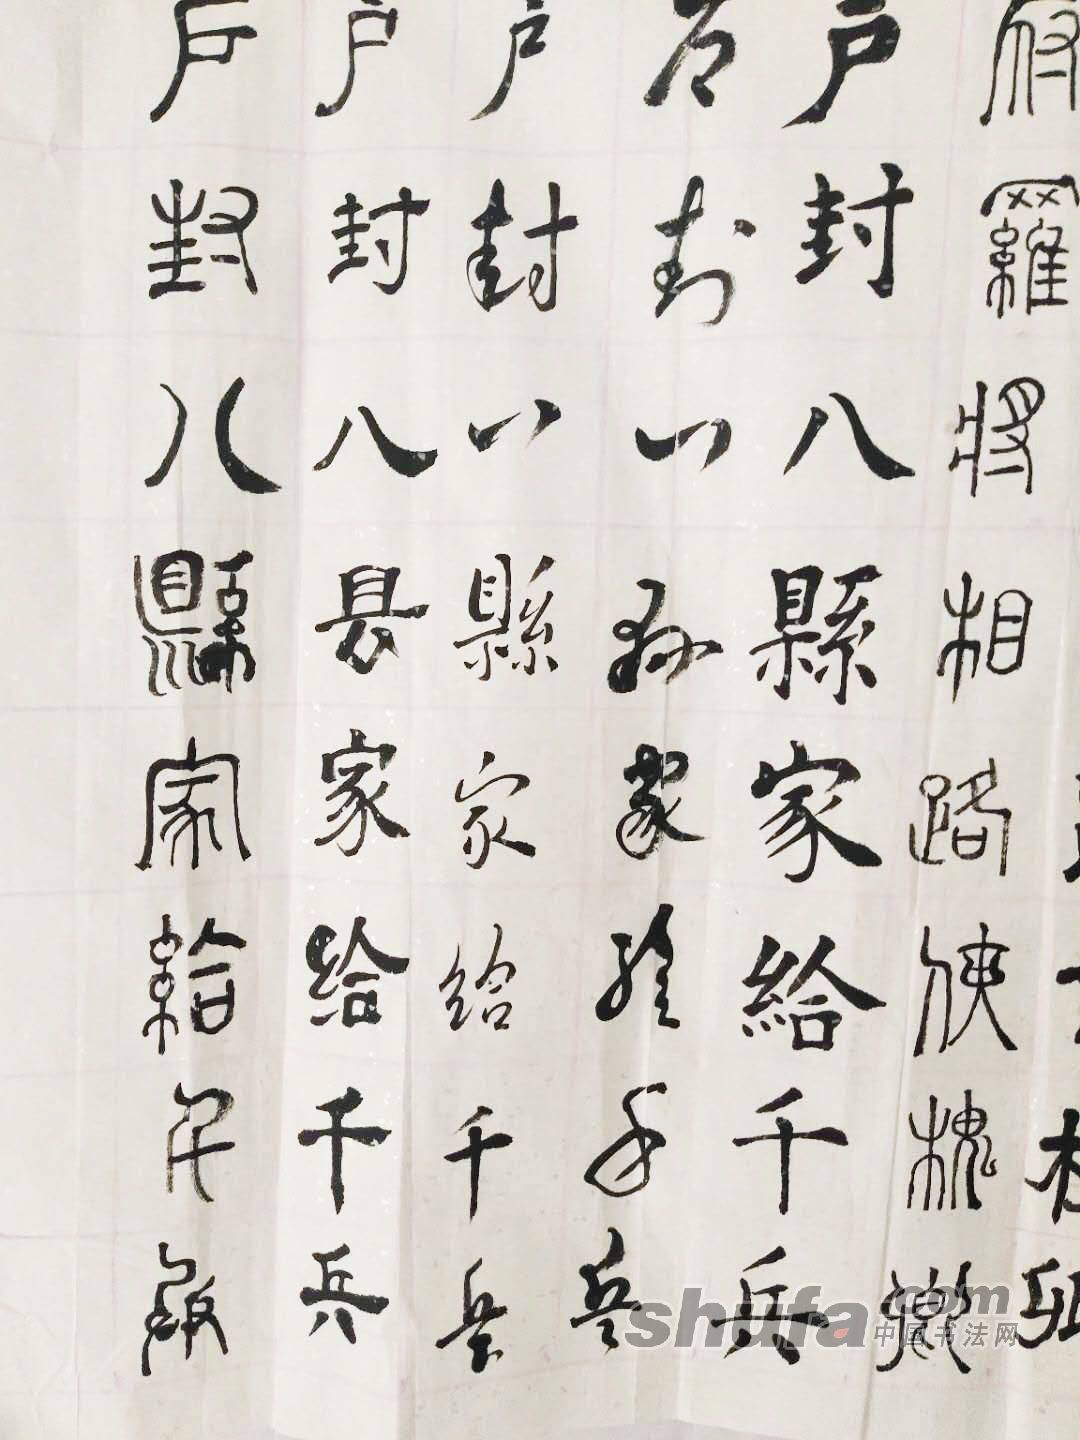 府羅將相路俠槐卿
户封八縣家給千兵
户封八縣家給千兵
户封八縣家給千兵
户封八县家給千兵
户封八縣家給千兵
shufa.com
中国书法网